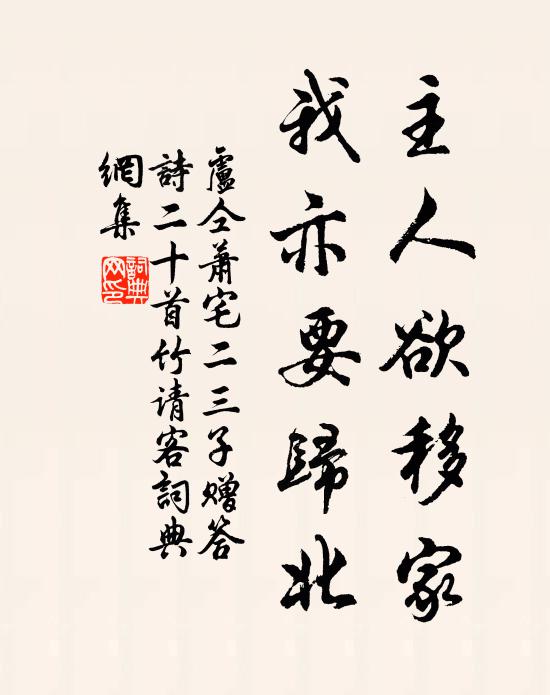 主人欲移家
我亦要歸北
盧仝蕭宅二三子贈答
詩二十首竹请客詞典
網集
詞典網印